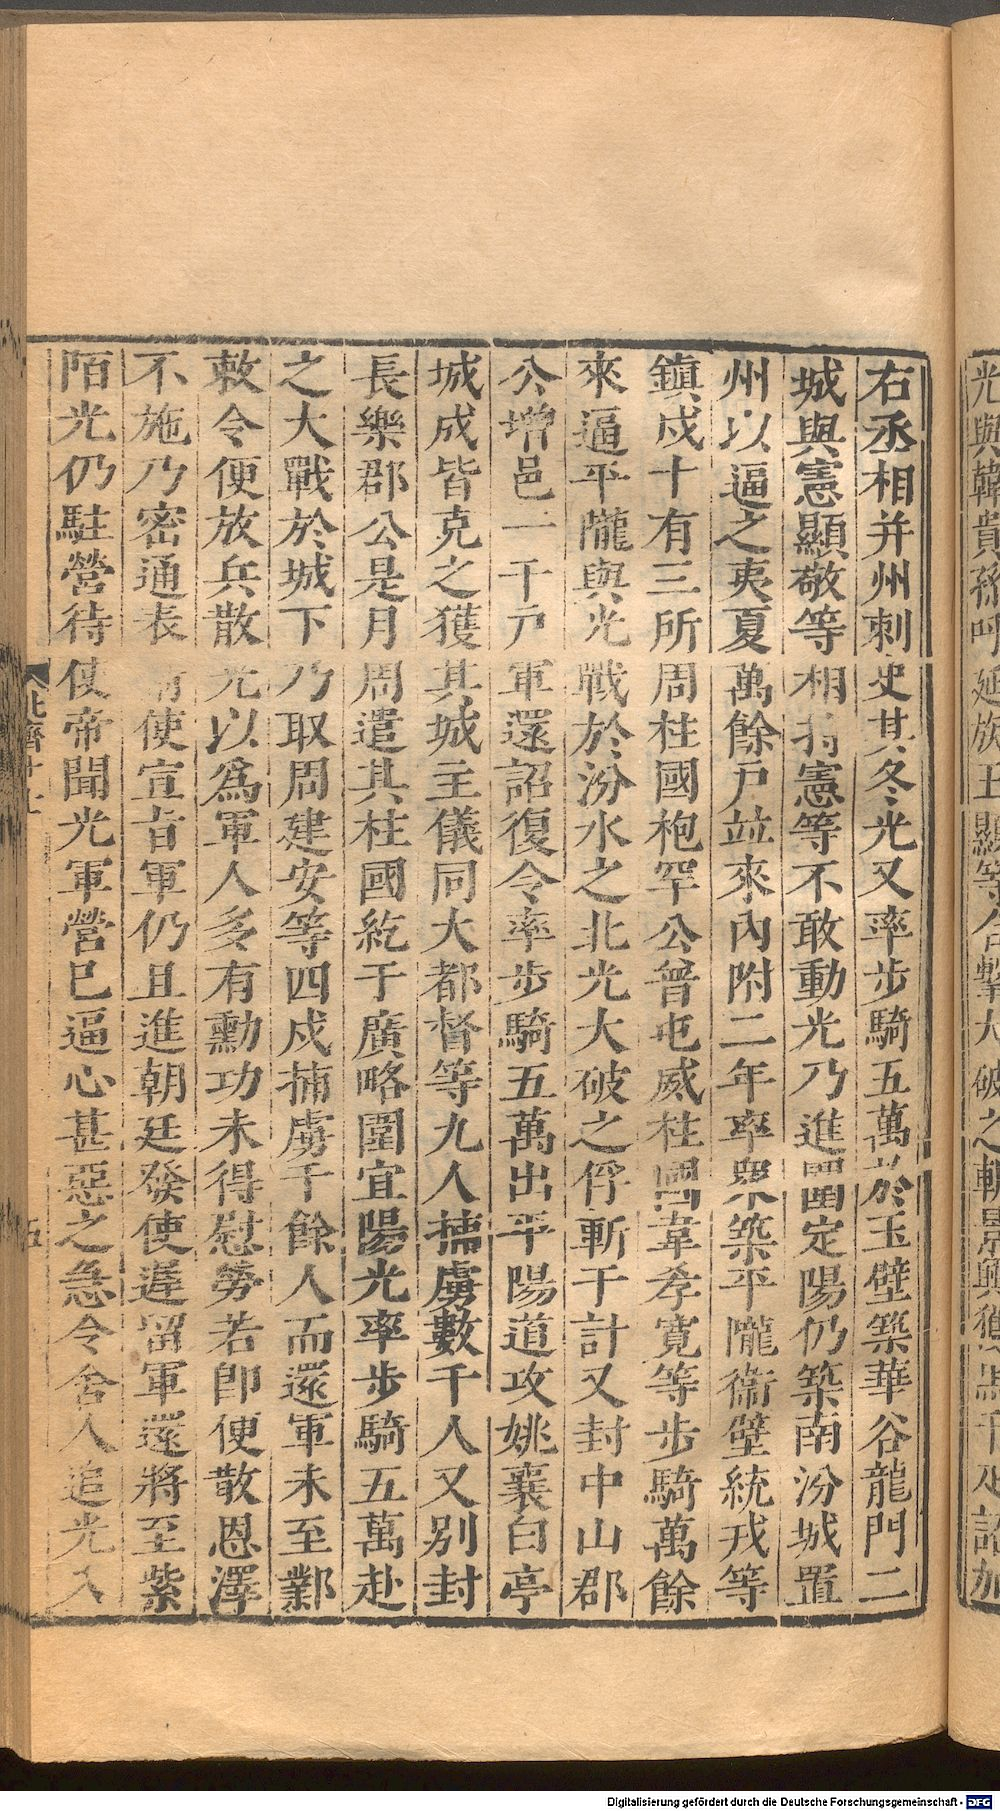 光與韓貴孫呼延族王顯等合擊大破之斬景興獲馬千疋詔加
右丞相并州刺史其冬光又率步騎五萬於玉壁築華谷龍門二
城與憲顯敬等相持憲等不敢動光乃進圍定陽仍築南汾城置
州以逼之夷夏萬餘戸竝來內附二年率眾築平隴衞壁統戎等
鎮戍十有三所周柱國枹罕公普屯威柱國韋孝寬等步騎萬餘
來逼平隴與光戰於汾水之北光大破之俘斬千計又封中山郡
公增邑一千戸軍還詔復令率步騎五萬出平陽道攻姚襄白亭
城戍皆克之獲其城主儀同大都督等九人捕虜數千人又別封
長樂郡公是月周遣其柱國紇于廣略圍宜陽光率步騎五萬赴
之大戰於城下乃取周建安等四戍捕虜千餘人而還軍未至鄴
敕令便放兵散光以為軍人多有勳功未得慰勞若卽便散恩澤
不施乃密通表請使宣旨軍仍且進朝廷發使遲留軍還將至紫
陌光仍駐營待使帝聞光軍營已逼心甚惡之急令舍人追光入
北齊十五
五
Digitalisierung gefördert durch die Deutsche Forschungsgemeinschaft - DFG